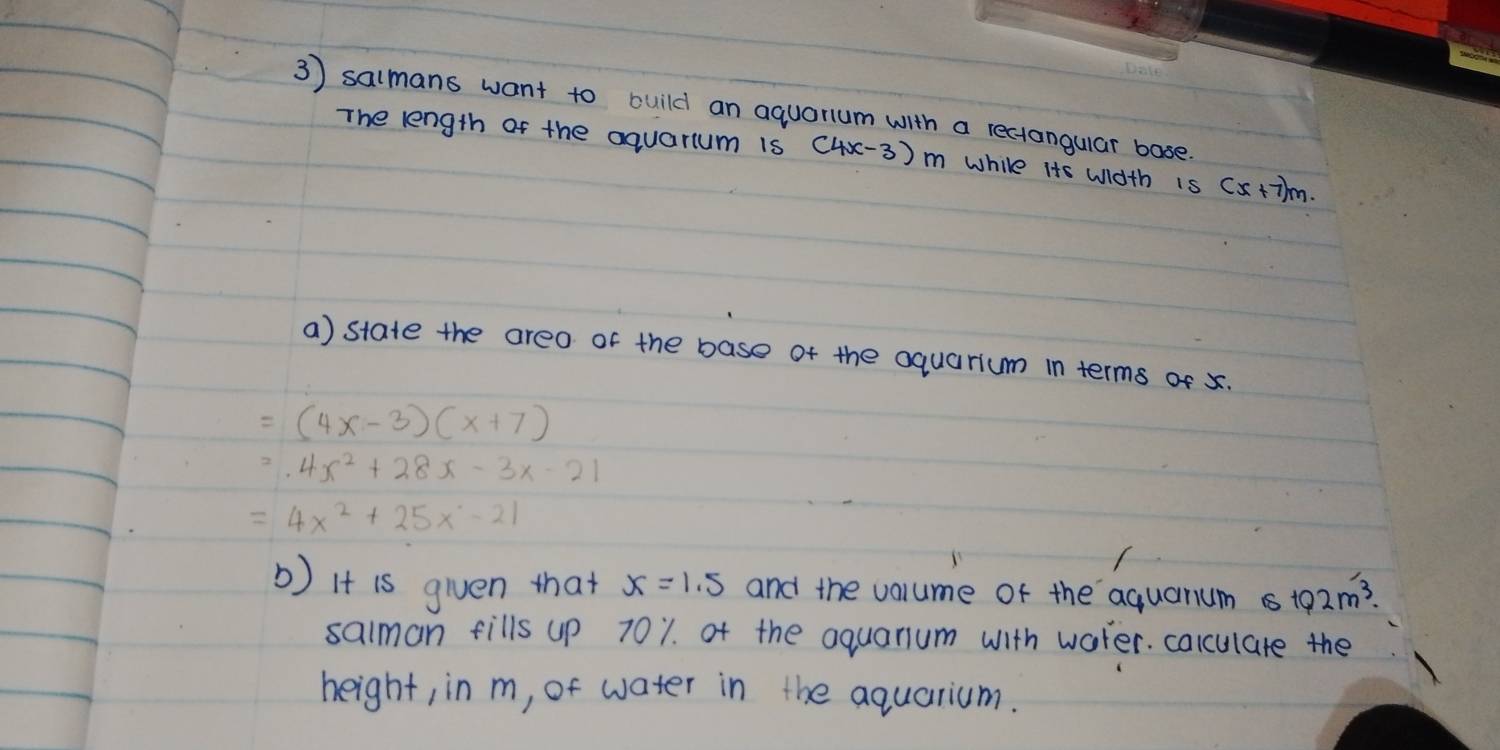 Date
3) salmans want to build an aquarium with a rectangular base.
The length of the aquarium is (4x-3) m while its width is (x+7)m.
a) state the area of the base of the aquarium in terms of x.
= (4x-3)(x+7)
= 4x² + 28x - 3x - 21
= 4x² + 25x - 21
b) It is given that x = 1.5 and the volume of the aquarium is 102m³.
salman fills up 70% of the aquarium with water. calculate the
height, in m, of water in the aquarium.